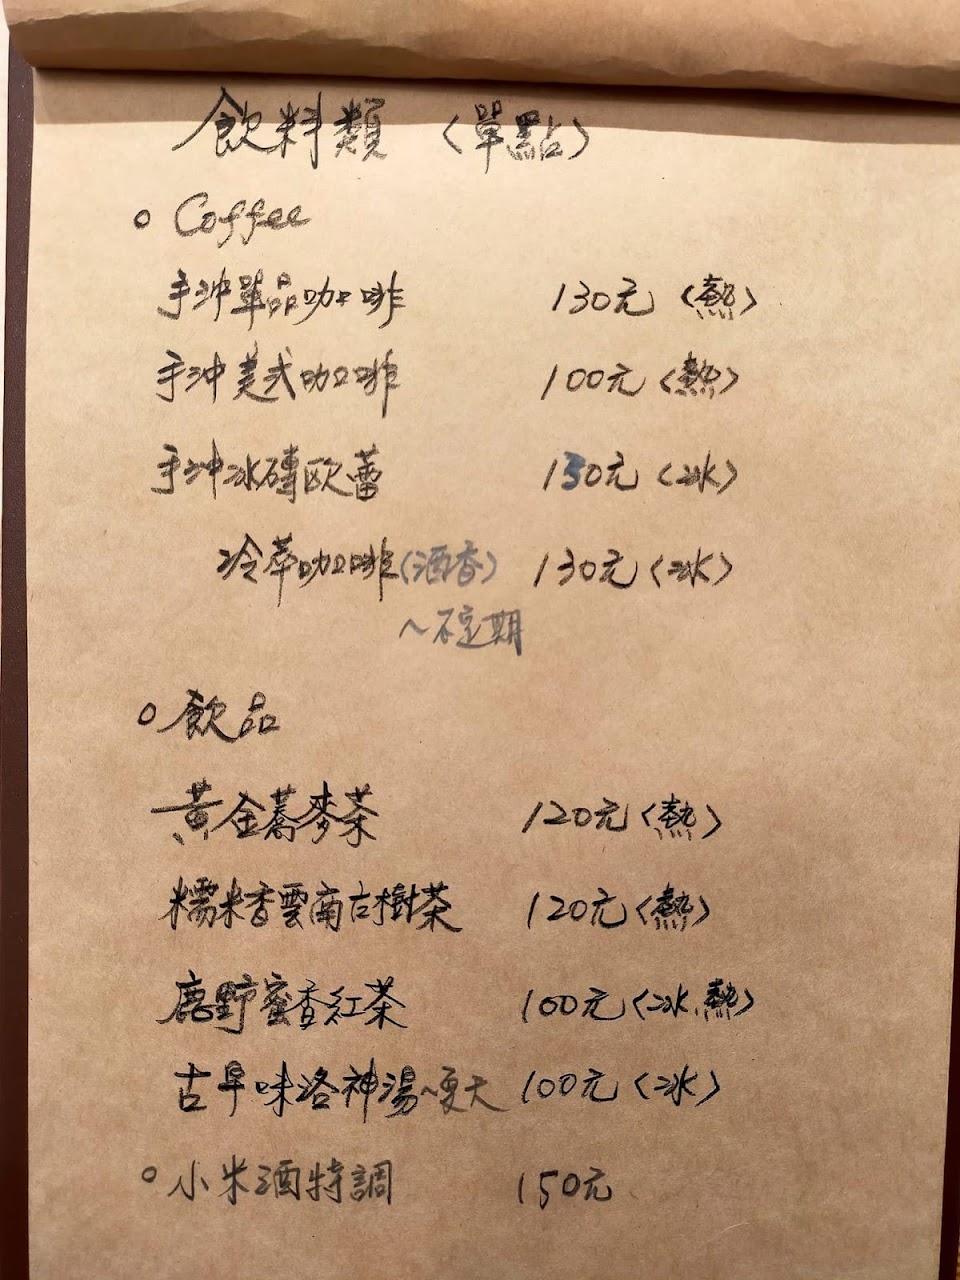 飲料類〈單點〉
○ Coffee
手沖單品咖啡 130元〈熱〉
手沖美式咖啡 100元〈熱〉
手沖冰磚歐蕾 130元〈冰〉
冷萃咖啡(酒香) 130元〈冰〉
~不定期
○ 飲品
黃金蕎麥茶 120元〈熱〉
糯米香雲南古樹茶 120元〈熱〉
鹿野蜜香紅茶 100元〈冰、熱〉
古早味洛神湯~夏天 100元〈冰〉
○ 小米酒特調 150元